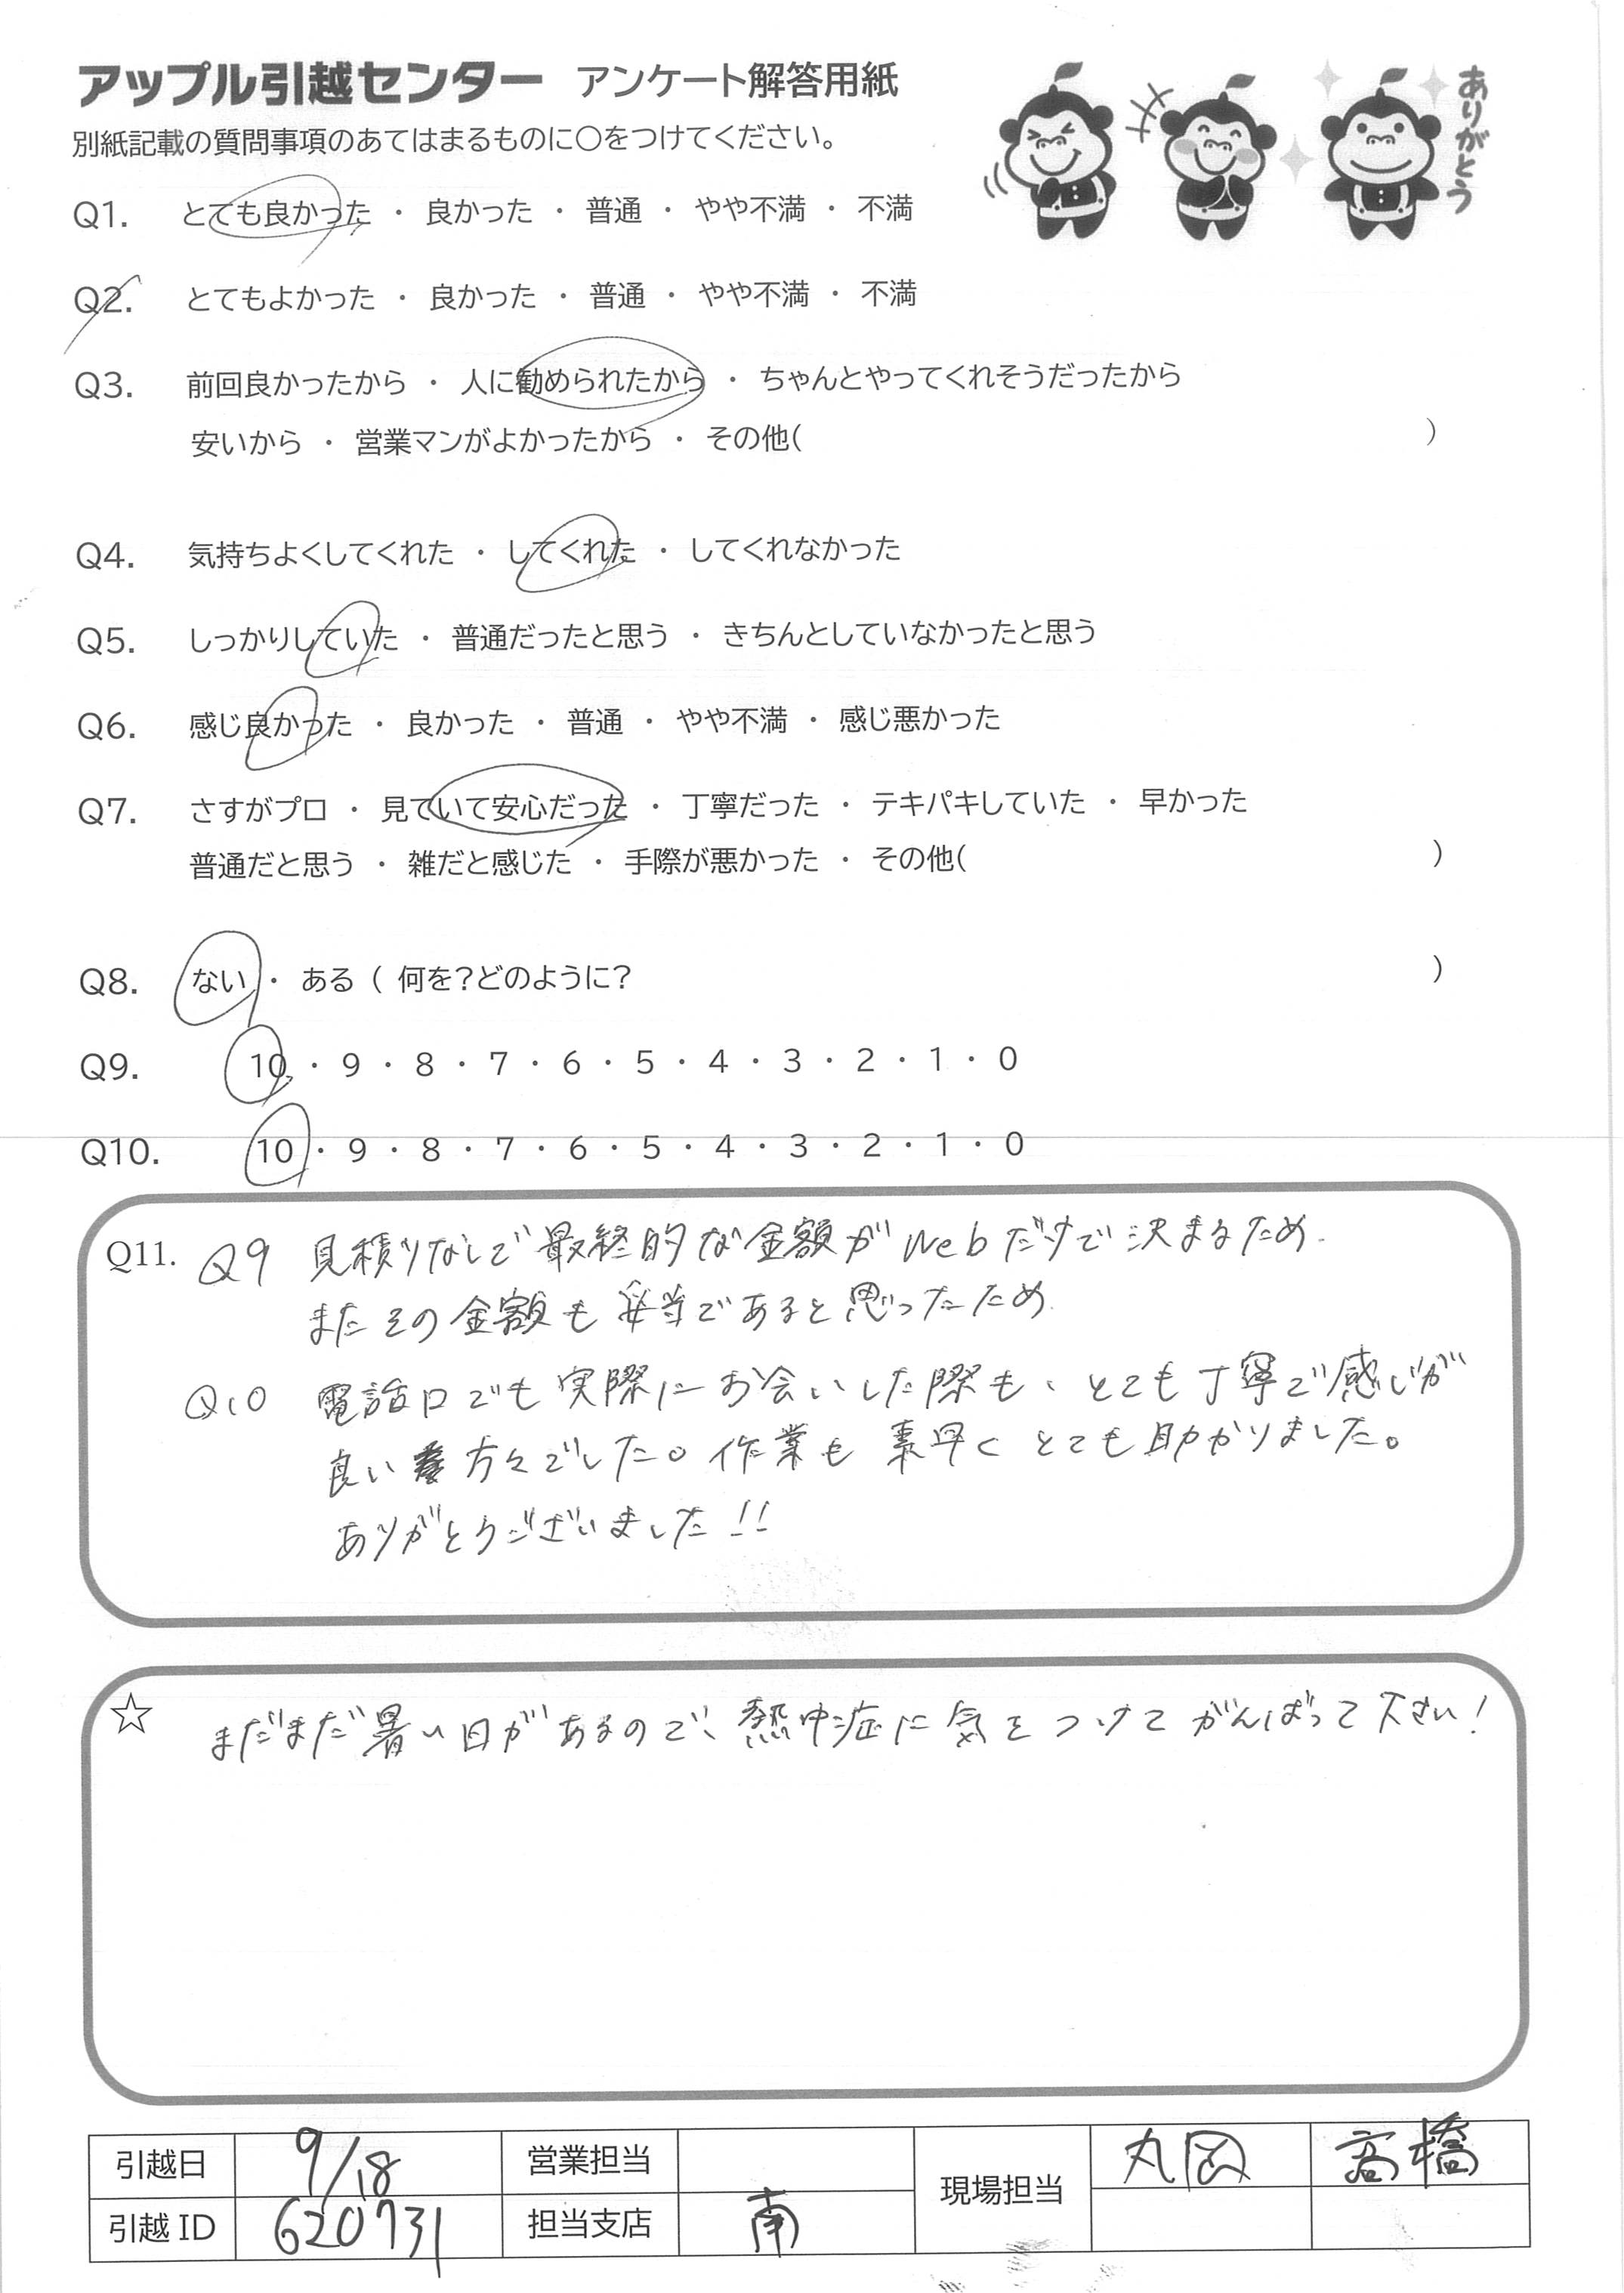 アップル引越センター アンケート解答用紙
ありがとう
別紙記載の質問事項のあてはまるものに○をつけてください。
Q1. とても良かった ・ 良かった ・ 普通 ・ やや不満 ・ 不満
Q2. とてもよかった ・ 良かった ・ 普通 ・ やや不満 ・ 不満
Q3. 前回良かったから ・ 人に勧められたから ・ ちゃんとやってくれそうだったから
安いから ・ 営業マンがよかったから ・ その他( )
Q4. 気持ちよくしてくれた ・ してくれた ・ してくれなかった
Q5. しっかりしていた ・ 普通だったと思う ・ きちんとしていなかったと思う
Q6. 感じ良かった ・ 良かった ・ 普通 ・ やや不満 ・ 感じ悪かった
Q7. さすがプロ ・ 見ていて安心だった ・ 丁寧だった ・ テキパキしていた ・ 早かった
普通だと思う ・ 雑だと感じた ・ 手際が悪かった ・ その他( )
Q8. ない ・ ある ( 何を?どのように? )
Q9. 10 ・ 9 ・ 8 ・ 7 ・ 6 ・ 5 ・ 4 ・ 3 ・ 2 ・ 1 ・ 0
Q10. 10 ・ 9 ・ 8 ・ 7 ・ 6 ・ 5 ・ 4 ・ 3 ・ 2 ・ 1 ・ 0
Q11. Q9 見積りなしで最終的な金額がWebだけで決まるため.
またその金額も妥当であると思ったため.
Q10 電話口でも実際にお会いした際も、とても丁寧で感じが
良い方々でした。作業も素早くとても助かりました。
ありがとうございました!!
☆ まだまだ暑い日があるので、熱中症に気をつけてがんばって下さい!
引越日 9/18 営業担当 現場担当 丸岡 高橋
引越ID 620731 担当支店 南